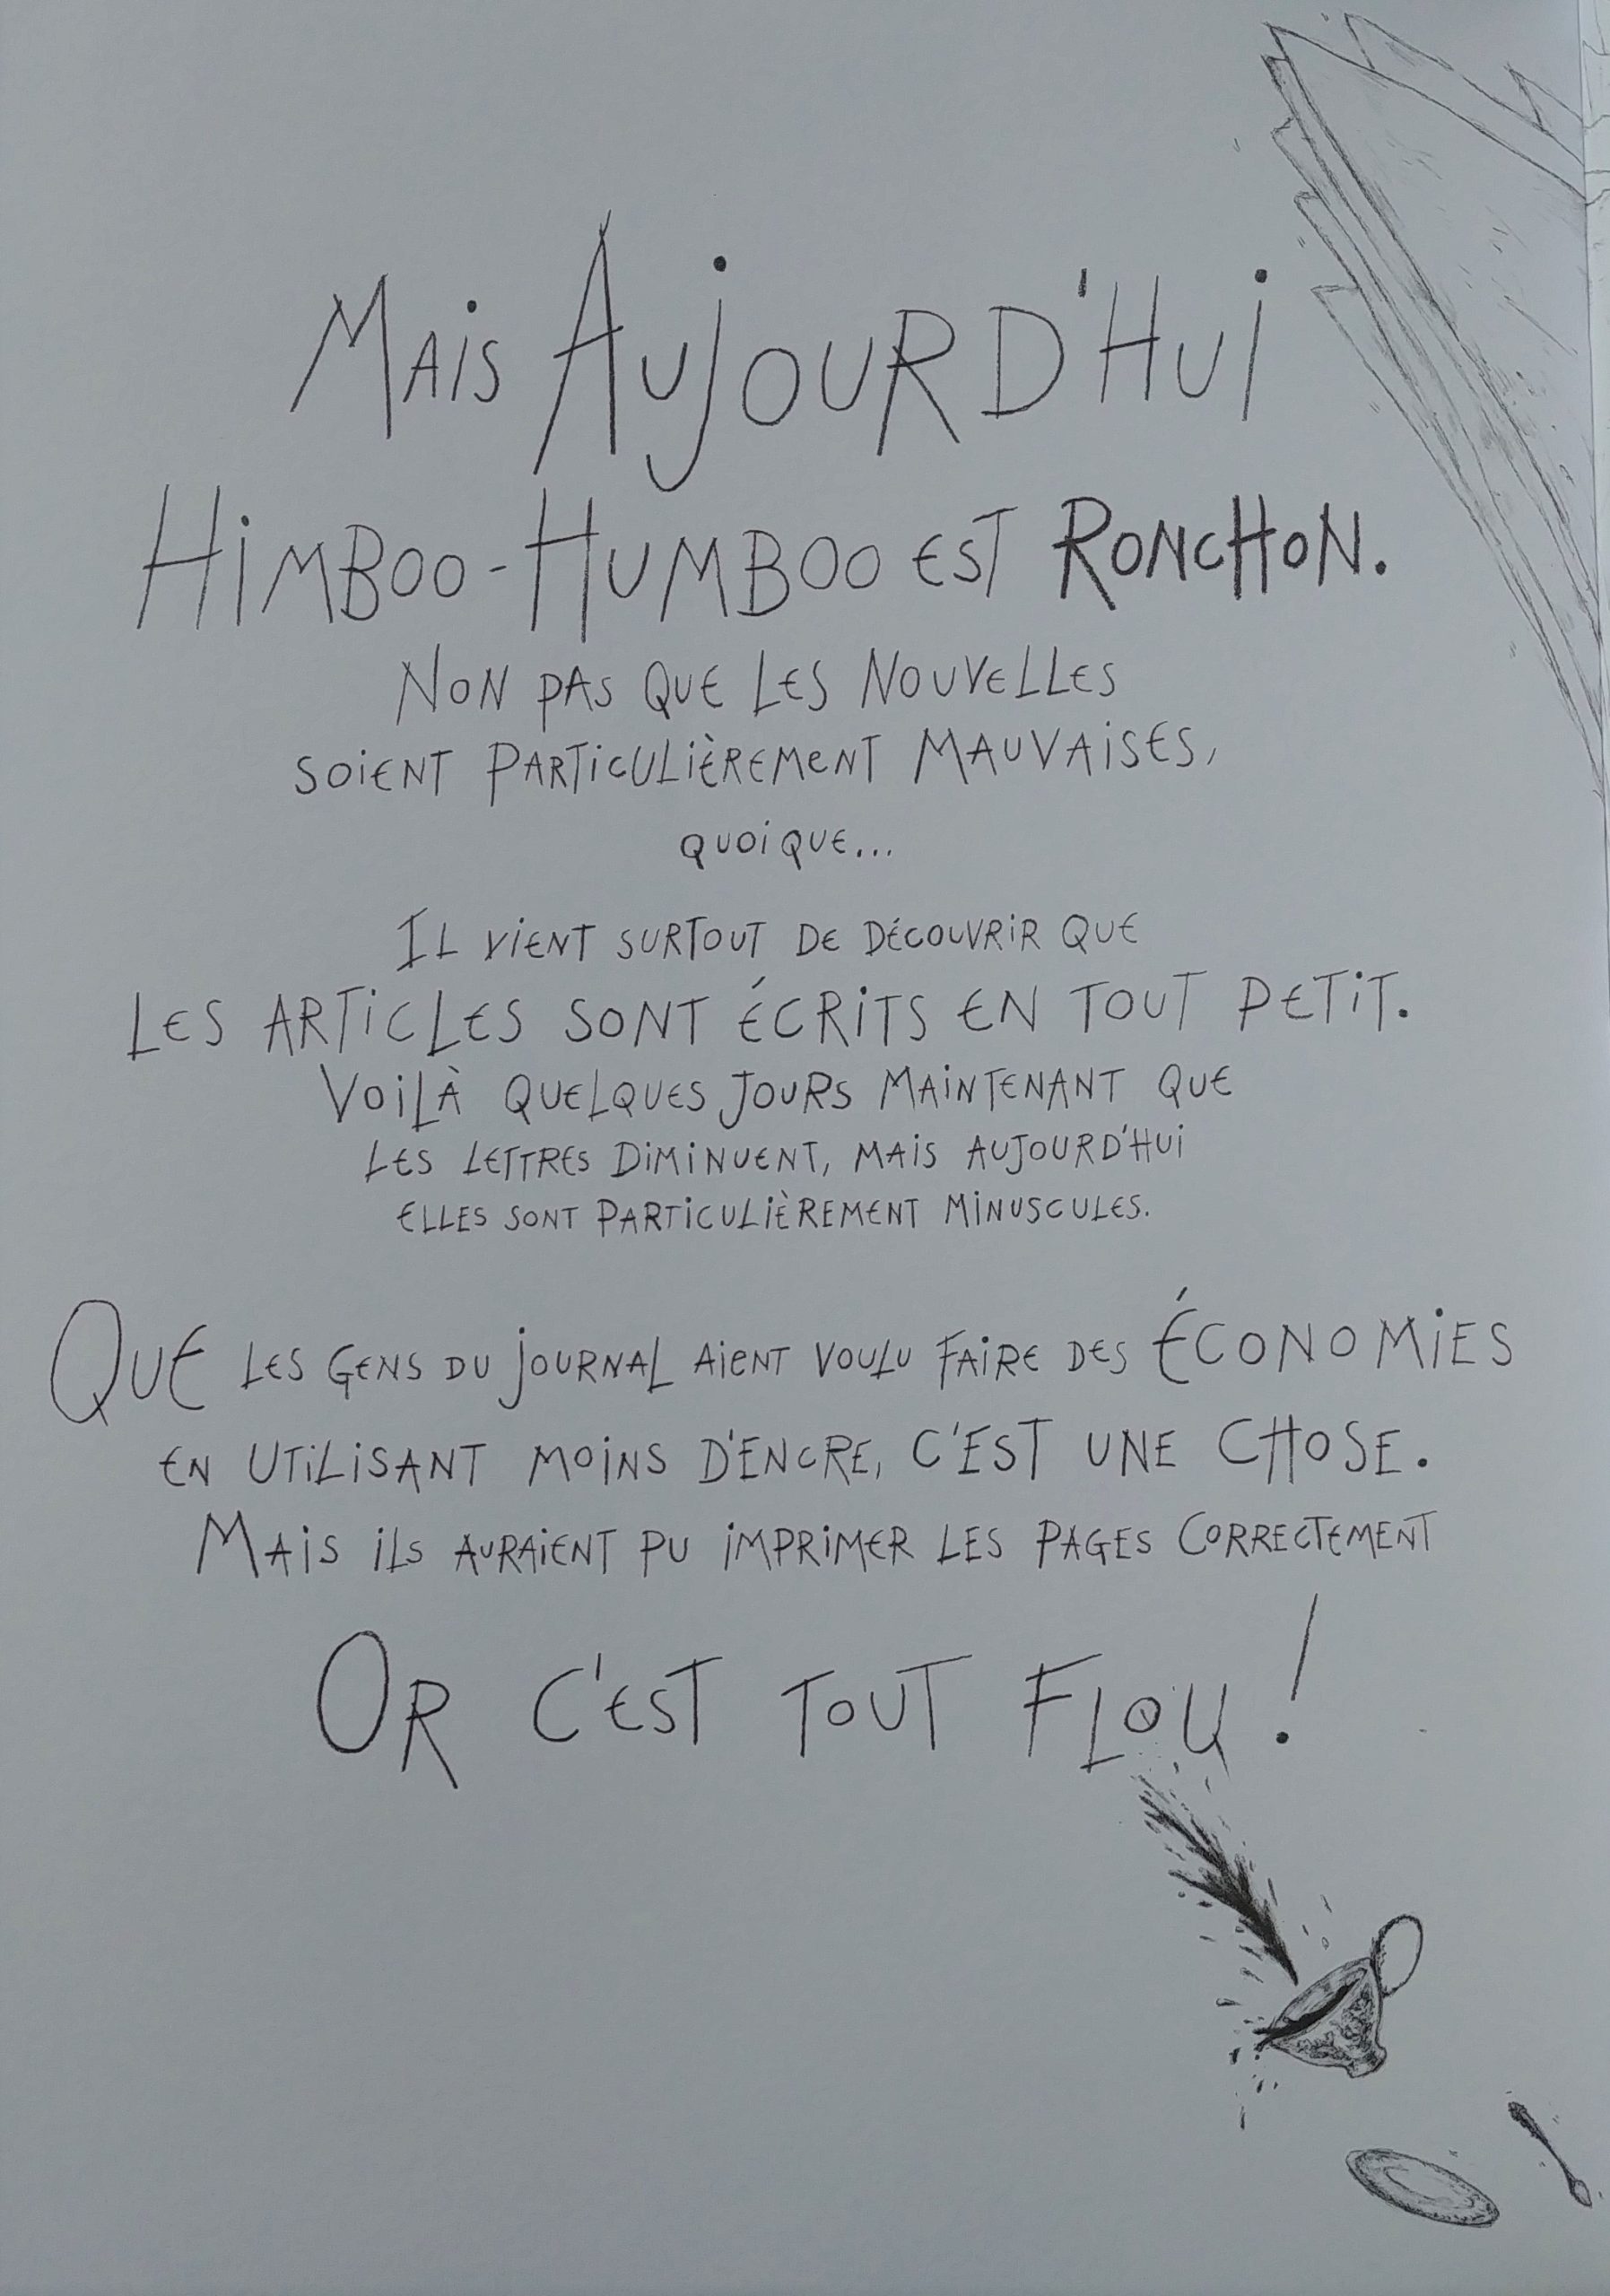 Mais Aujourd'Hui
Himboo-Humboo est Ronchon.
Non pas que les Nouvelles
soient particulièrement mauvaises,
quoique...
Il vient surtout de découvrir que
les articles sont écrits en tout petit.
Voilà quelques jours maintenant que
les lettres diminuent, mais aujourd'hui
elles sont particulièrement minuscules.
Que les gens du journal aient voulu faire des économies
en utilisant moins d'encre, c'est une chose.
Mais ils auraient pu imprimer les pages correctement
Or c'est tout flou !